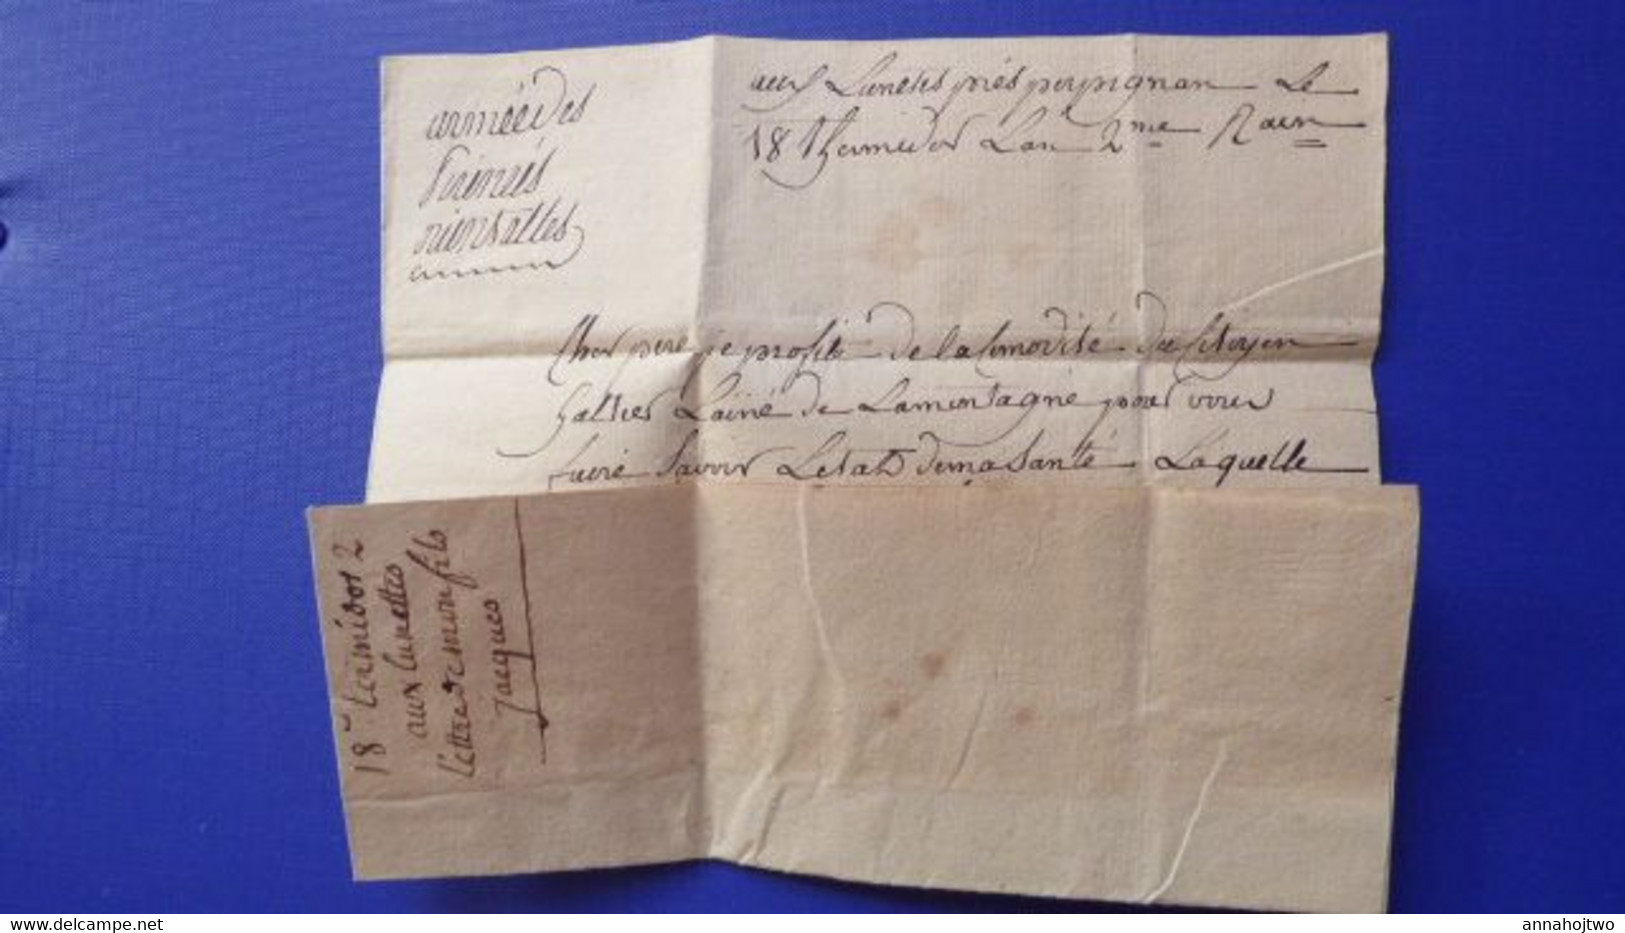 armée Des
Pirinés
oriensalles
aux Lunetes prés perpignan Le
18 Thermidor Lan 2me
Cher pere je profite De la Comodité Du Citoyen
galtier Lainé de Lamontagne pour vous
faire Savoir Letat De ma Santé Laquelle
18 termidor 2
aux lunettes
Lettre de mon fils
Jacques
delcampe.net
annahojtwo